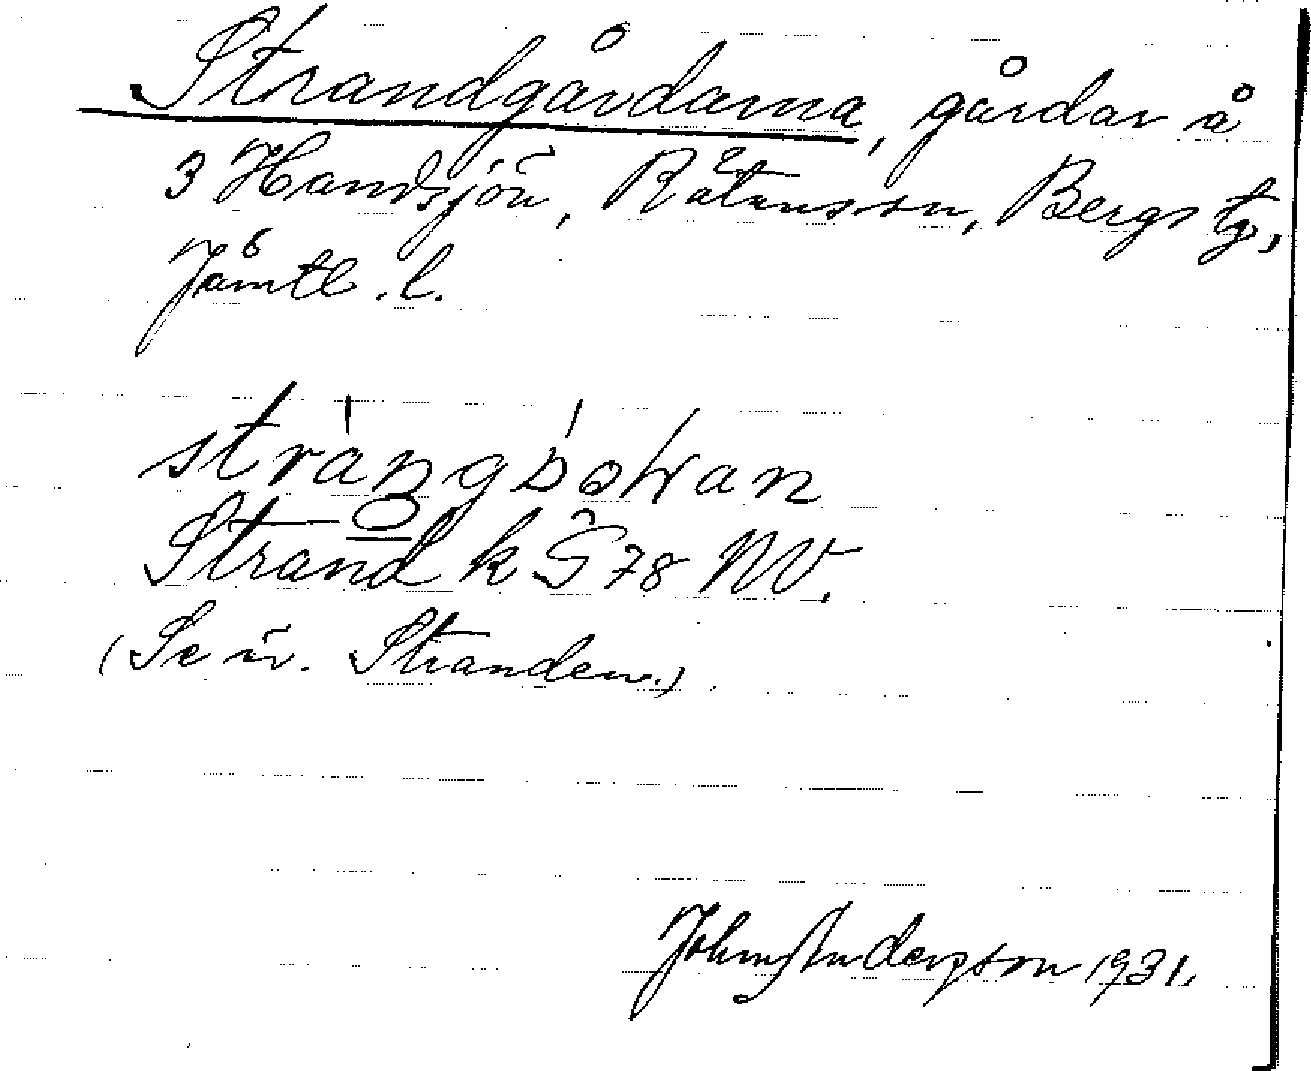 Strandgårdarna, gårdar å
3 Handsjön, Rätansson, Bergs tg,
Jämtl. l.
Strand k S 78 NV.
(Se äv. Stranden.)
Johny Andersson 1931.